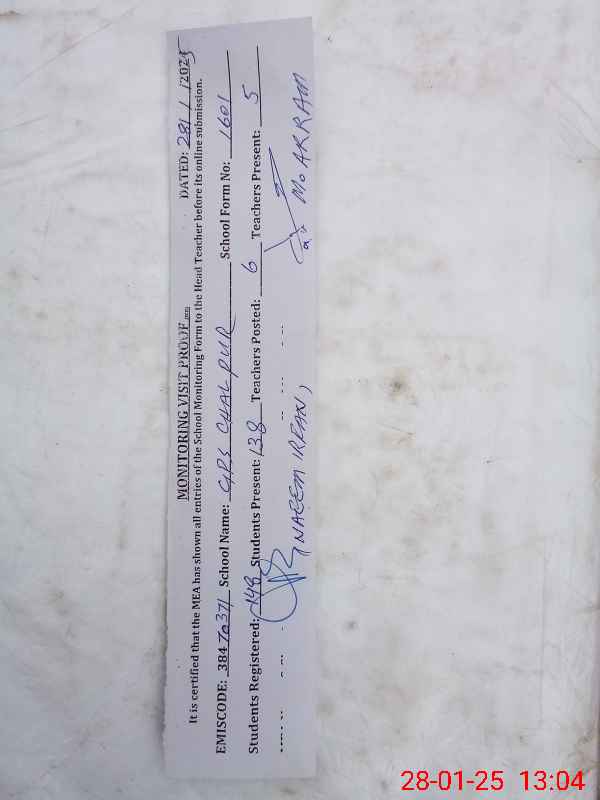 MONITORING VISIT PROOF DATED: 28/1/2025
It is certified that the MEA has shown all entries of the School Monitoring Form to the Head Teacher before its online submission.
EMISCODE: 38470371 School Name: GPS CHAL PUR School Form No: 1601
Students Registered: 148 Students Present: 138 Teachers Posted: 6 Teachers Present: 5
NAEEM IRFAN, M. AKRAM
28-01-25 13:04